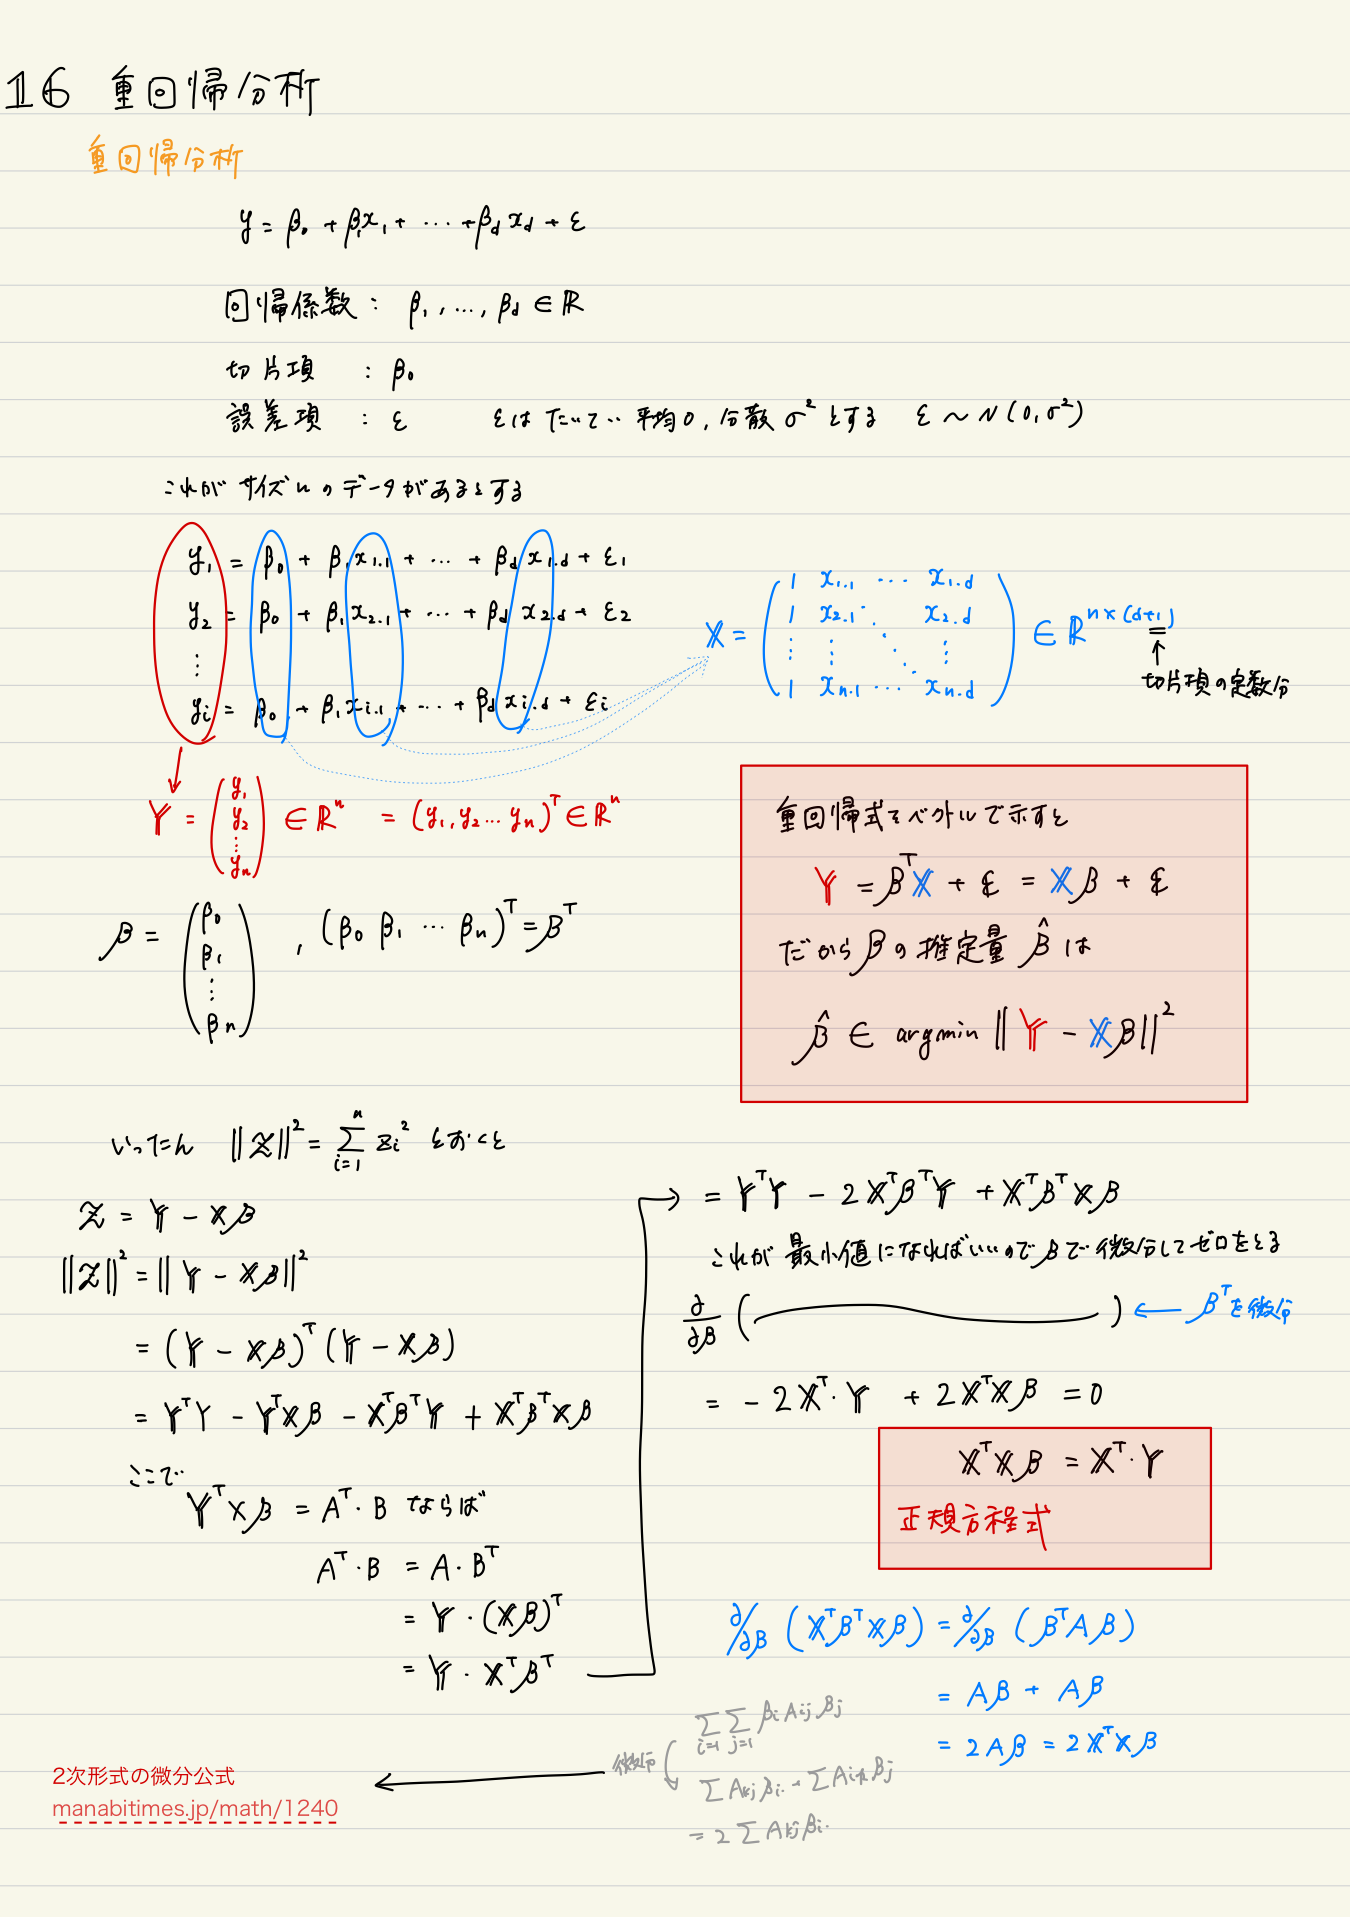 16 重回帰分析
重回帰分析
y = β₀ + β₁x₁ + … + β_d x_d + ε
回帰係数 : β₁, …, β_d ∈ ℝ
切片項 : β₀
誤差項 : ε εはだいてい平均0, 分散σ²とする ε ~ N(0, σ²)
これがサイズnのデータがあるとする
y₁ = β₀ + β₁x₁.₁ + … + β_d x₁.d + ε₁
y₂ = β₀ + β₁x₂.₁ + … + β_d x₂.d + ε₂
⋮
yi = β₀ + β₁xi.₁ + … + β_d xi.d + εi
X = ( 1 x₁.₁ … x₁.d
1 x₂.₁ ⋱ x₂.d
⋮ ⋮ ⋱ ⋮
1 xn.₁ … xn.d ) ∈ ℝ^{n×(d+1)}
↑
切片項の定数分
Y = ( y₁ y₂ ⋮ yn ) ∈ ℝⁿ = (y₁, y₂ … yn)ᵀ ∈ ℝⁿ
β = ( β₀ β₁ ⋮ βn ) , (β₀ β₁ … βn)ᵀ = βᵀ
重回帰式をベクトルで示すと
Y = βᵀX + ε = Xβ + ε
だからβの推定量 β̂ は
β̂ ∈ argmin ‖Y − Xβ‖²
いったん ‖Z‖² = Σ_{i=1}^{n} zi² とおくと
Z = Y − Xβ
‖Z‖² = ‖Y − Xβ‖²
= (Y − Xβ)ᵀ(Y − Xβ)
= YᵀY − YᵀXβ − XᵀβᵀY + XᵀβᵀXβ
ここで
YᵀXβ = Aᵀ·B ならば
Aᵀ·B = A·Bᵀ
= Y·(Xβ)ᵀ
= Y·Xᵀβᵀ
= YᵀY − 2XᵀβᵀY + XᵀβᵀXβ
これが最小値になればいいのでβで微分してゼロをとる
∂/∂β ( ) ← βᵀを微分
= −2Xᵀ·Y + 2XᵀXβ = 0
XᵀXβ = Xᵀ·Y
正規方程式
∂/∂β (XᵀβᵀXβ) = ∂/∂β (βᵀAβ)
= Aβ + Aβ
= 2Aβ = 2XᵀXβ
Σ_{i=1} Σ_{j=1} βi Aij βj
微分
= 2Σ Akj βi
2次形式の微分公式
manabitimes.jp/math/1240